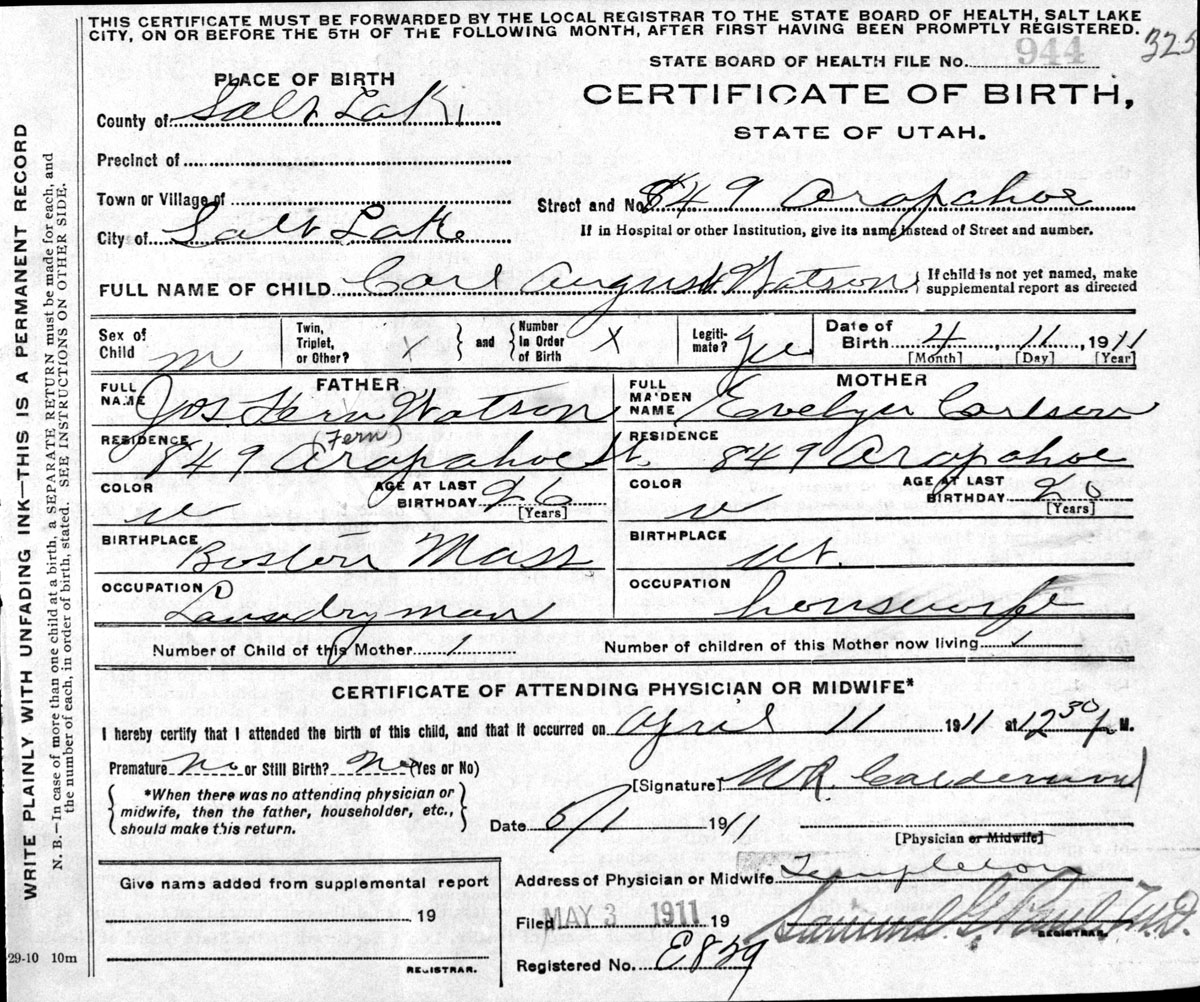 THIS CERTIFICATE MUST BE FORWARDED BY THE LOCAL REGISTRAR TO THE STATE BOARD OF HEALTH, SALT LAKE
CITY, ON OR BEFORE THE 5TH OF THE FOLLOWING MONTH, AFTER FIRST HAVING BEEN PROMPTLY REGISTERED.
325
STATE BOARD OF HEALTH FILE No. 944
PLACE OF BIRTH
CERTIFICATE OF BIRTH,
STATE OF UTAH.
County of Salt Lake
Precinct of
Town or Village of
Street and No. 849 Arapahoe
City of Salt Lake
If in Hospital or other Institution, give its name instead of Street and number.
FULL NAME OF CHILD Carl August Watson
If child is not yet named, make
supplemental report as directed
Sex of Child m
Twin, Triplet, or Other? X
and
Number In Order of Birth X
Legiti-mate? Yes
Date of Birth 4, 11, 1911
[Month] [Day] [Year]
FATHER
FULL NAME Jos. Hern Watson
(Fern)
RESIDENCE 849 Arapahoe St.
COLOR w
AGE AT LAST BIRTHDAY 26
[Years]
BIRTHPLACE Boston Mass
OCCUPATION Laundryman
MOTHER
FULL MAIDEN NAME Evelyn Carlson
RESIDENCE 849 Arapahoe
COLOR w
AGE AT LAST BIRTHDAY 20
[Years]
BIRTHPLACE Ut.
OCCUPATION housewife
Number of Child of this Mother 1
Number of children of this Mother now living 1
CERTIFICATE OF ATTENDING PHYSICIAN OR MIDWIFE*
I hereby certify that I attended the birth of this child, and that it occurred on April 11 1911 at 12 30 M.
Premature No or Still Birth? No (Yes or No)
*When there was no attending physician or
midwife, then the father, householder, etc.,
should make this return.
[Signature] W.R. Calderwood
Date 5/1 1911
[Physician or Midwife]
Give name added from supplemental report
19
REGISTRAR.
Address of Physician or Midwife Templeton
Filed MAY 3 1911 19
Samuel G. Paul M.D.
REGISTRAR.
Registered No. E829
29-10 10m
WRITE PLAINLY WITH UNFADING INK—THIS IS A PERMANENT RECORD
N. B.—In case of more than one child at a birth, a SEPARATE RETURN must be made for each, and
the number of each, in order of birth, stated. SEE INSTRUCTIONS ON OTHER SIDE.